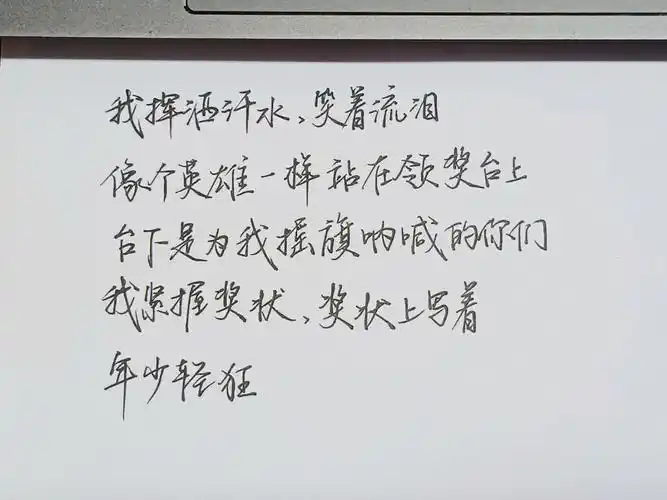 我挥洒汗水、笑着流泪
像个英雄一样站在领奖台上
台下是为我摇旗呐喊的你们
我紧握奖状、奖状上写着
年少轻狂